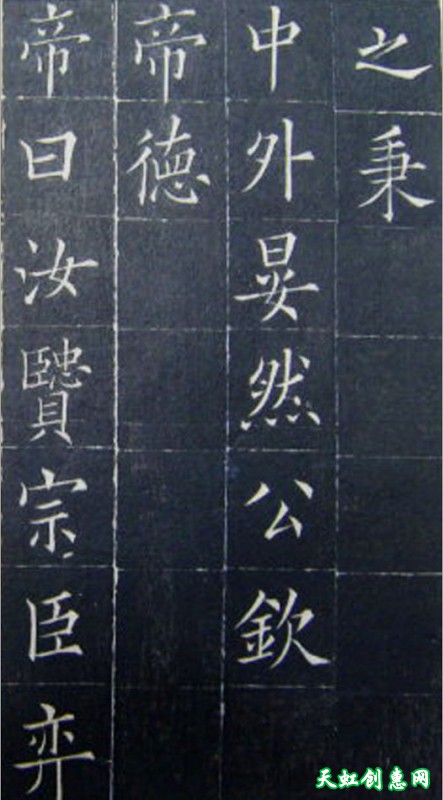 之秉
中外晏然公欽
帝徳
帝曰汝贒宗臣弈
天虹创惠网